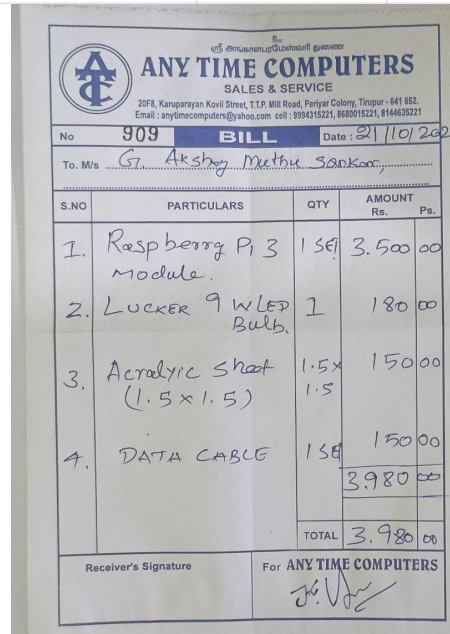 உ
ஸ்ரீ அங்காளபரமேஸ்வரி துணை
ATC
ANY TIME COMPUTERS
SALES & SERVICE
20F8, Karuparayan Kovil Street, T.T.P. Mill Road, Periyar Colony, Tirupur - 641 652.
Email : anytimecomputers@yahoo.com cell : 9994315221, 8680015221, 8144635221
No 909 BILL Date : 21/10/202
To. M/s G. Akshay Muthu Sankar,
S.NO PARTICULARS QTY AMOUNT
Rs. Ps.
1. Raspberry Pi 3 1 SET 3.500 00
Module.
2. LUCKER 9 W LED 1 180 00
Bulb.
3. Acralyic Sheet 1.5x 150 00
(1.5 x 1.5) 1.5
4. DATA CABLE 1 SET 150 00
3.980 00
TOTAL 3.980 00
Receiver's Signature For ANY TIME COMPUTERS